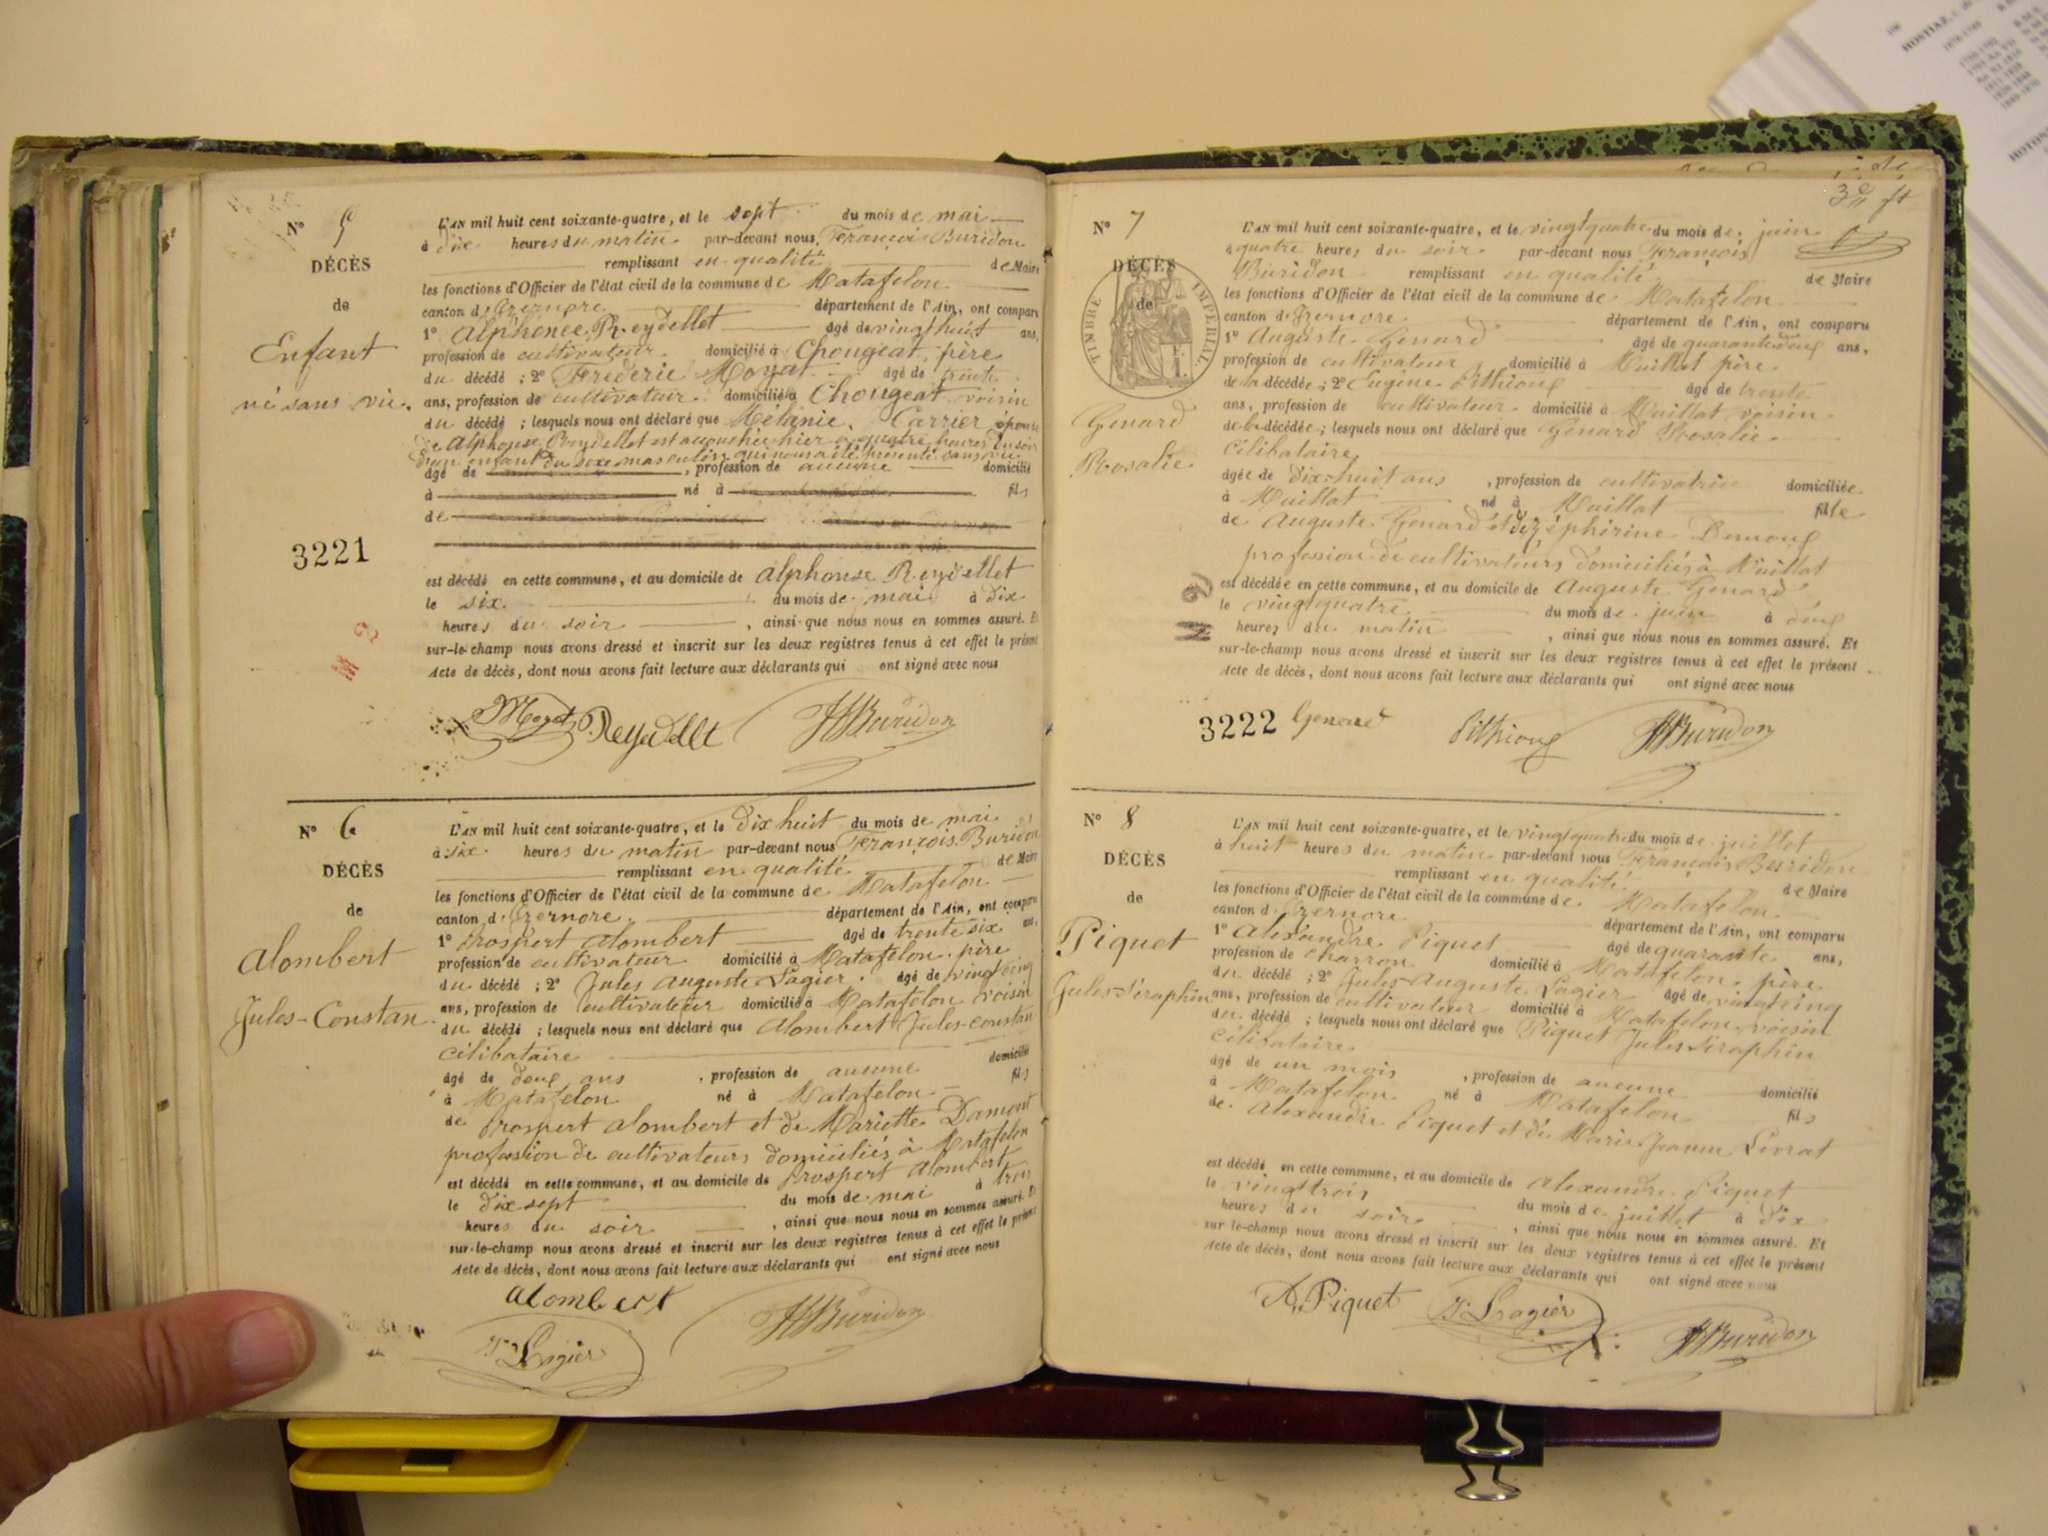 N° 5
DÉCÈS
de
Enfant
né sans vie.
3221
M 2
L'AN mil huit cent soixante-quatre, et le sept du mois de mai
à dix heures du matin par-devant nous François Buridon
remplissant en qualité de Maire
les fonctions d'Officier de l'état civil de la commune de Matafelon
canton d'Izernore département de l'Ain, ont comparu
1° Alphonse Reydellet âgé de vingt huit ans,
profession de cultivateur domicilié à Chougeat, père
du décédé ; 2° Frédéric Moyat âgé de trente
ans, profession de cultivateur domicilié à Chougeat voisin
du décédé ; lesquels nous ont déclaré que Mélanie Carrier épouse
de Alphonse Reydellet est accouchée hier à quatre heures du soir
d'un enfant du sexe masculin qui nous a été présenté sans vie
âgé de , profession de aucune domicilié
à né à fils
de
est décédé en cette commune, et au domicile de Alphonse Reydellet
le six du mois de mai à dix
heures du soir , ainsi que nous nous en sommes assuré. Et
sur-le-champ nous avons dressé et inscrit sur les deux registres tenus à cet effet le présent
Acte de décès, dont nous avons fait lecture aux déclarants qui ont signé avec nous
Moyat Reydellet Buridon
N° 6
DÉCÈS
de
Alombert
Jules-Constan
L'AN mil huit cent soixante-quatre, et le dix huit du mois de mai
à six heures du matin par-devant nous François Buridon
remplissant en qualité de Maire
les fonctions d'Officier de l'état civil de la commune de Matafelon
canton d'Izernore département de l'Ain, ont comparu
1° Prospert Alombert âgé de trente six ans,
profession de cultivateur domicilié à Matafelon père
du décédé ; 2° Jules Auguste Lagier âgé de vingt cinq
ans, profession de cultivateur domicilié à Matafelon voisin
du décédé ; lesquels nous ont déclaré que Alombert Jules-Constan
célibataire
âgé de deux ans , profession de aucune domicilié
à Matafelon né à Matafelon fils
de Prospert Alombert et de Mariette Damont
profession de cultivateurs domiciliés à Matafelon
est décédé en cette commune, et au domicile de Prospert Alombert
le dix sept du mois de mai à trois
heures du soir , ainsi que nous nous en sommes assuré. Et
sur-le-champ nous avons dressé et inscrit sur les deux registres tenus à cet effet le présent
Acte de décès, dont nous avons fait lecture aux déclarants qui ont signé avec nous
Alombert
J. Lagier Buridon
3e ft
N° 7
DÉCÈS
de
TIMBRE IMPÉRIAL
Genard
Rosalie
M 2
3222
L'AN mil huit cent soixante-quatre, et le vingt quatre du mois de juin
à quatre heures du soir par-devant nous François
Buridon remplissant en qualité de Maire
les fonctions d'Officier de l'état civil de la commune de Matafelon
canton d'Izernore département de l'Ain, ont comparu
1° Auguste Genard âgé de quarante deux ans,
profession de cultivateur domicilié à Maillat père
de la décédée ; 2° Eugène Pithioux âgé de trente
ans, profession de cultivateur domicilié à Maillat voisin
de la décédée ; lesquels nous ont déclaré que Genard Rosalie
célibataire
âgée de dix-huit ans , profession de cultivatrice domiciliée
à Maillat né à Maillat fille
de Auguste Genard et de Zéphirine Demoux
profession de cultivateurs domiciliés à Maillat
est décédée en cette commune, et au domicile de Auguste Genard
le vingt quatre du mois de juin à deux
heures du matin , ainsi que nous nous en sommes assuré. Et
sur-le-champ nous avons dressé et inscrit sur les deux registres tenus à cet effet le présent
Acte de décès, dont nous avons fait lecture aux déclarants qui ont signé avec nous
Genard Pithioux Buridon
N° 8
DÉCÈS
de
Piquet
Jules-Séraphin
L'AN mil huit cent soixante-quatre, et le vingt quatre du mois de juillet
à huit heures du matin par-devant nous François Buridon
remplissant en qualité de Maire
les fonctions d'Officier de l'état civil de la commune de Matafelon
canton d'Izernore département de l'Ain, ont comparu
1° Alexandre Piquet âgé de quarante ans,
profession de charron domicilié à Matafelon père
du décédé ; 2° Jules-Auguste Lagier âgé de vingt cinq
ans, profession de cultivateur domicilié à Matafelon voisin
du décédé ; lesquels nous ont déclaré que Piquet Jules Séraphin
célibataire
âgé de un mois , profession de aucune domicilié
à Matafelon né à Matafelon fils
de Alexandre Piquet et de Marie Jeanne Livrat
est décédé en cette commune, et au domicile de Alexandre Piquet
le vingt trois du mois de juillet à dix
heures du soir , ainsi que nous nous en sommes assuré. Et
sur-le-champ nous avons dressé et inscrit sur les deux registres tenus à cet effet le présent
Acte de décès, dont nous avons fait lecture aux déclarants qui ont signé avec nous
A. Piquet J. Lagier Buridon